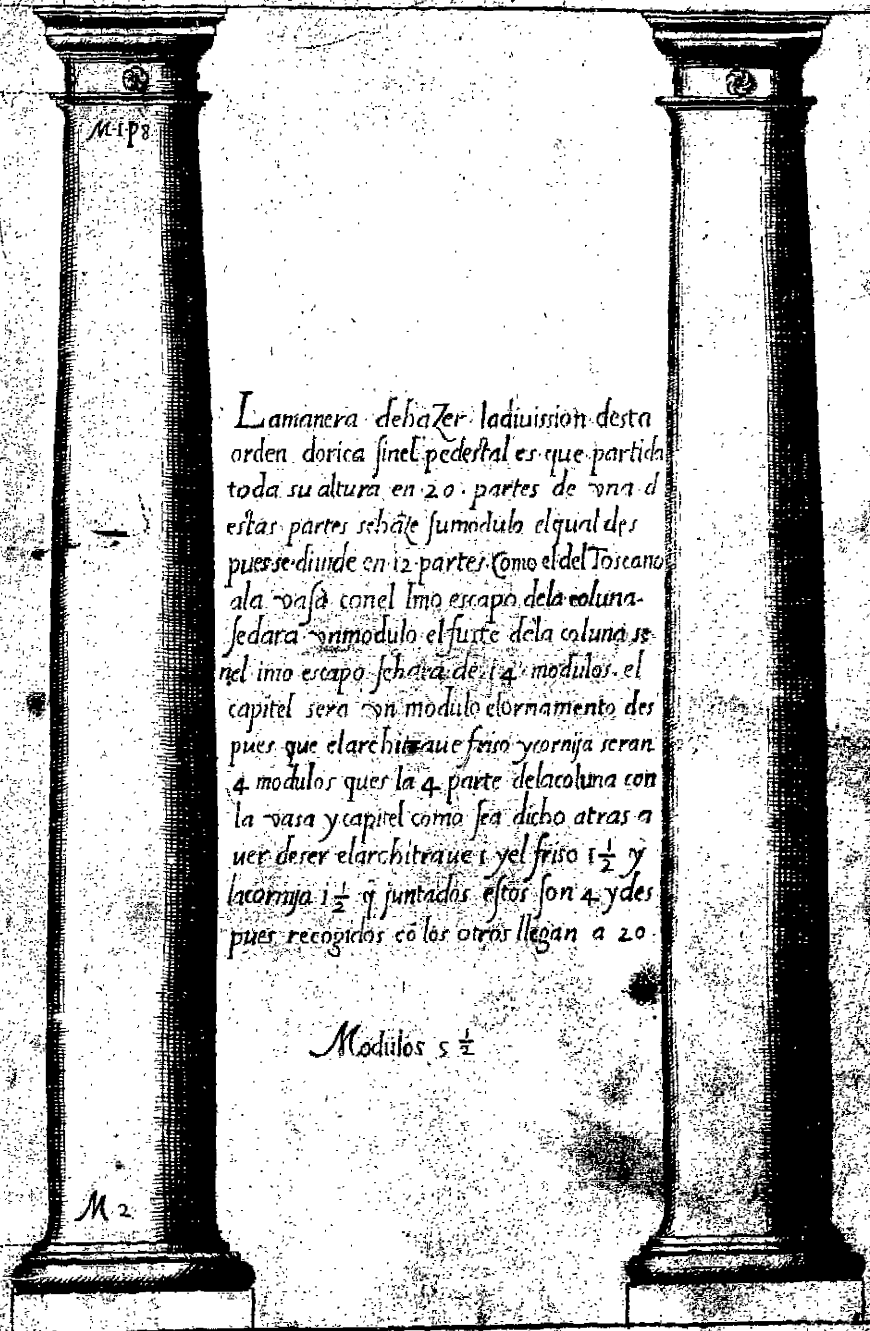 M·1·p8
Lamanera dehazer ladiuission desta
orden dorica sinel pedestal es que partida
toda su altura en 20. partes de vna d
estas partes sehaze sumodulo elqual des
puesse diuide en 12 partes. Como el del Toscano
ala vasa conel Imo escapo dela coluna.
sedara vnmodulo el fuste dela coluna se
nel imo escapo sehara de 14 modulos. el
capitel sera vn modulo elornamento des
pues que elarchitraue friso ycornija seran
4 modulos ques la 4 parte delacoluna con
la vasa y capitel como sea dicho atras a
uer deser elarchitraue 1 yel friso 1½ y
lacornija 1½ q̃ juntados estos son 4 ydes
pues recogidos cõ los otros llegan a 20
Modulos 5½
M 2